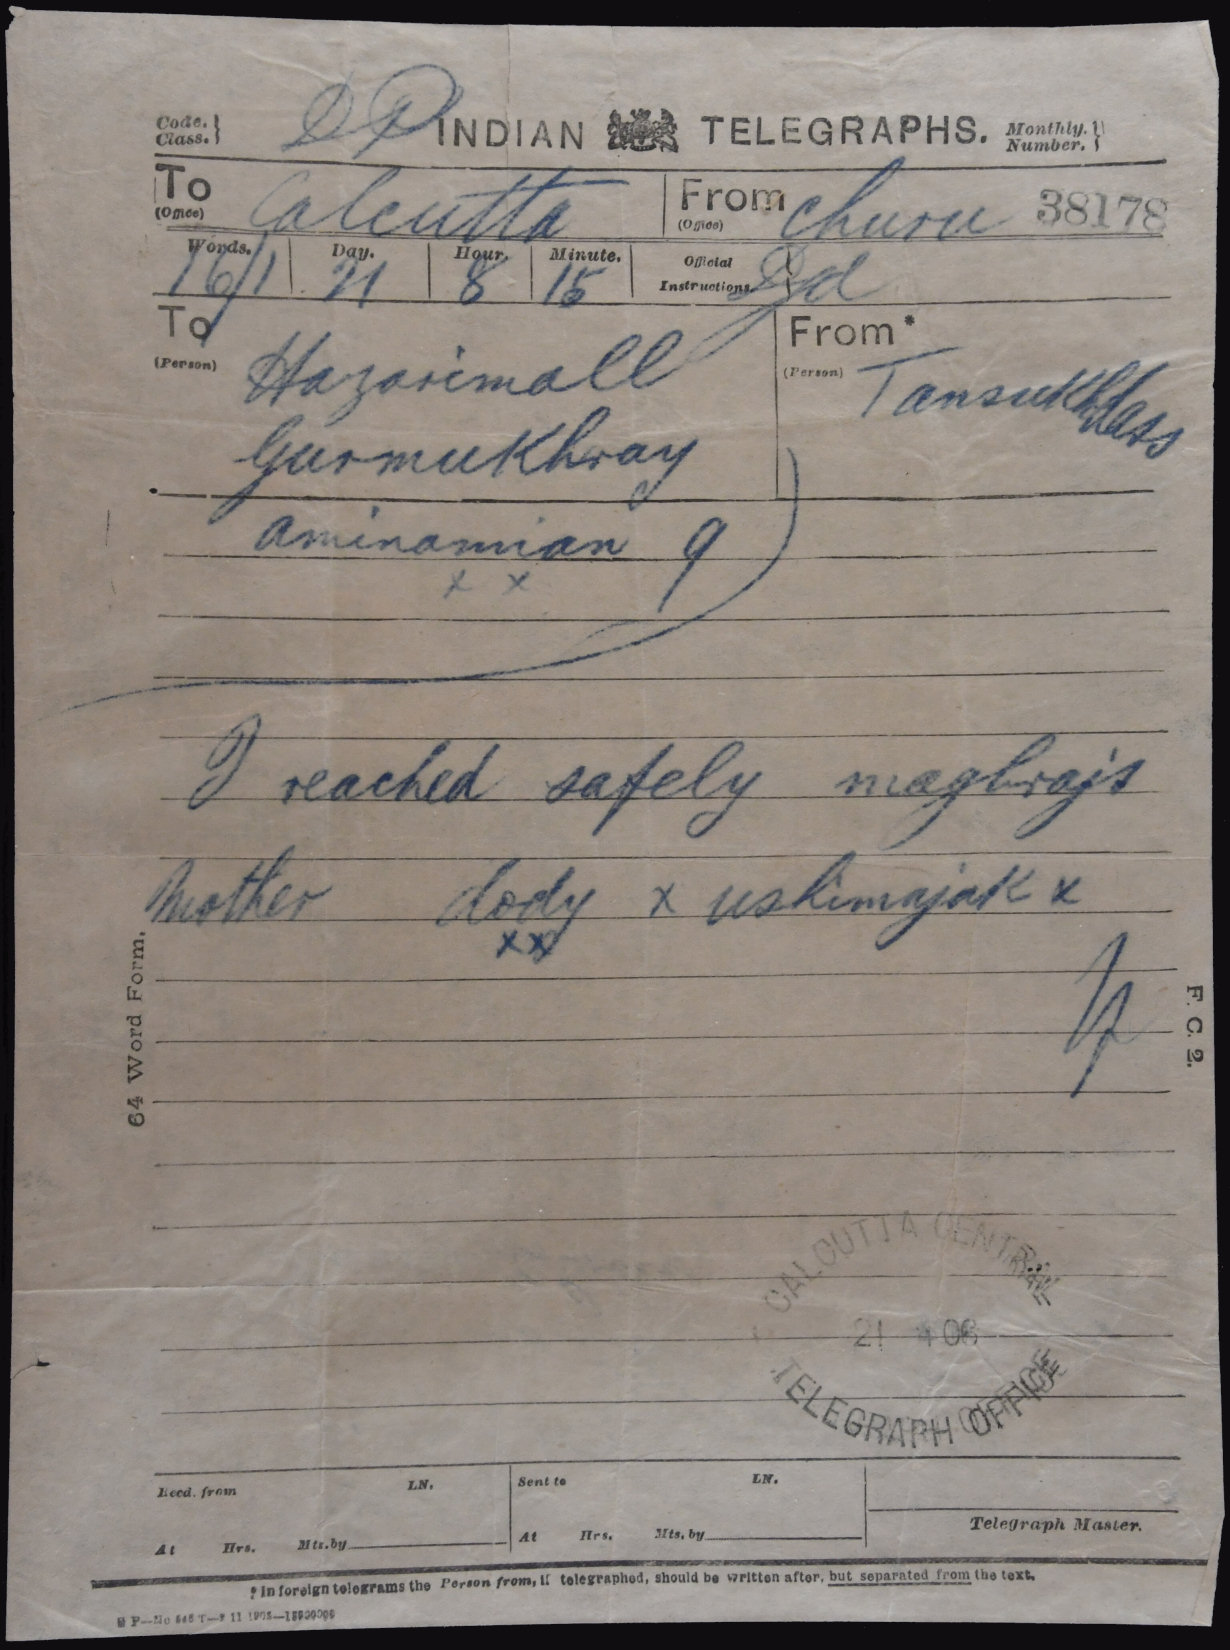 Code.
Class.
D P
INDIAN TELEGRAPHS.
Monthly.
Number.
To
(Office)
Calcutta
From
(Office)
Churu
38178
Words. Day. Hour. Minute. Official
Instructions.
16/1 21 8 15
To
(Person)
Hazarimall
Gurmukhray
aminamian 9
x x
From*
(Person)
Tansukhdass
I reached safely meghraj's
Mother dody x uskimajak x
xx
64 Word Form.
F. C. 2.
CALCUTTA CENTRAL
21 4 06
TELEGRAPH OFFICE
Recd. from LN.
At Hrs. Mts. by
Sent to LN.
At Hrs. Mts. by
Telegraph Master.
* In foreign telegrams the Person from, if telegraphed, should be written after, but separated from the text.